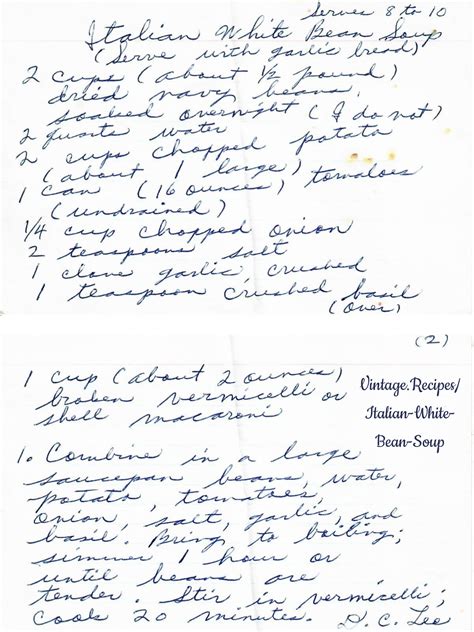 Serves 8 to 10
Italian White Bean Soup
(Serve with garlic bread)
2 cups (about ½ pound)
dried navy beans,
soaked overnight (I do not)
2 quarts water
2 cups chopped potato
(about 1 large)
1 can (16 ounces) tomatoes
(undrained)
1/4 cup chopped onion
2 teaspoons salt
1 clove garlic, crushed
1 teaspoon crushed basil
(over)
(2)
1 cup (about 2 ounces)
broken vermicelli or
shell macaroni
Vintage.Recipes/
Italian-White-
Bean-Soup
1. Combine in a large
saucepan beans, water,
potato, tomatoes,
onion, salt, garlic, and
basil. Bring to boiling;
simmer 1 hour or
until beans are
tender. Stir in vermicelli;
cook 20 minutes. D. C. Lee